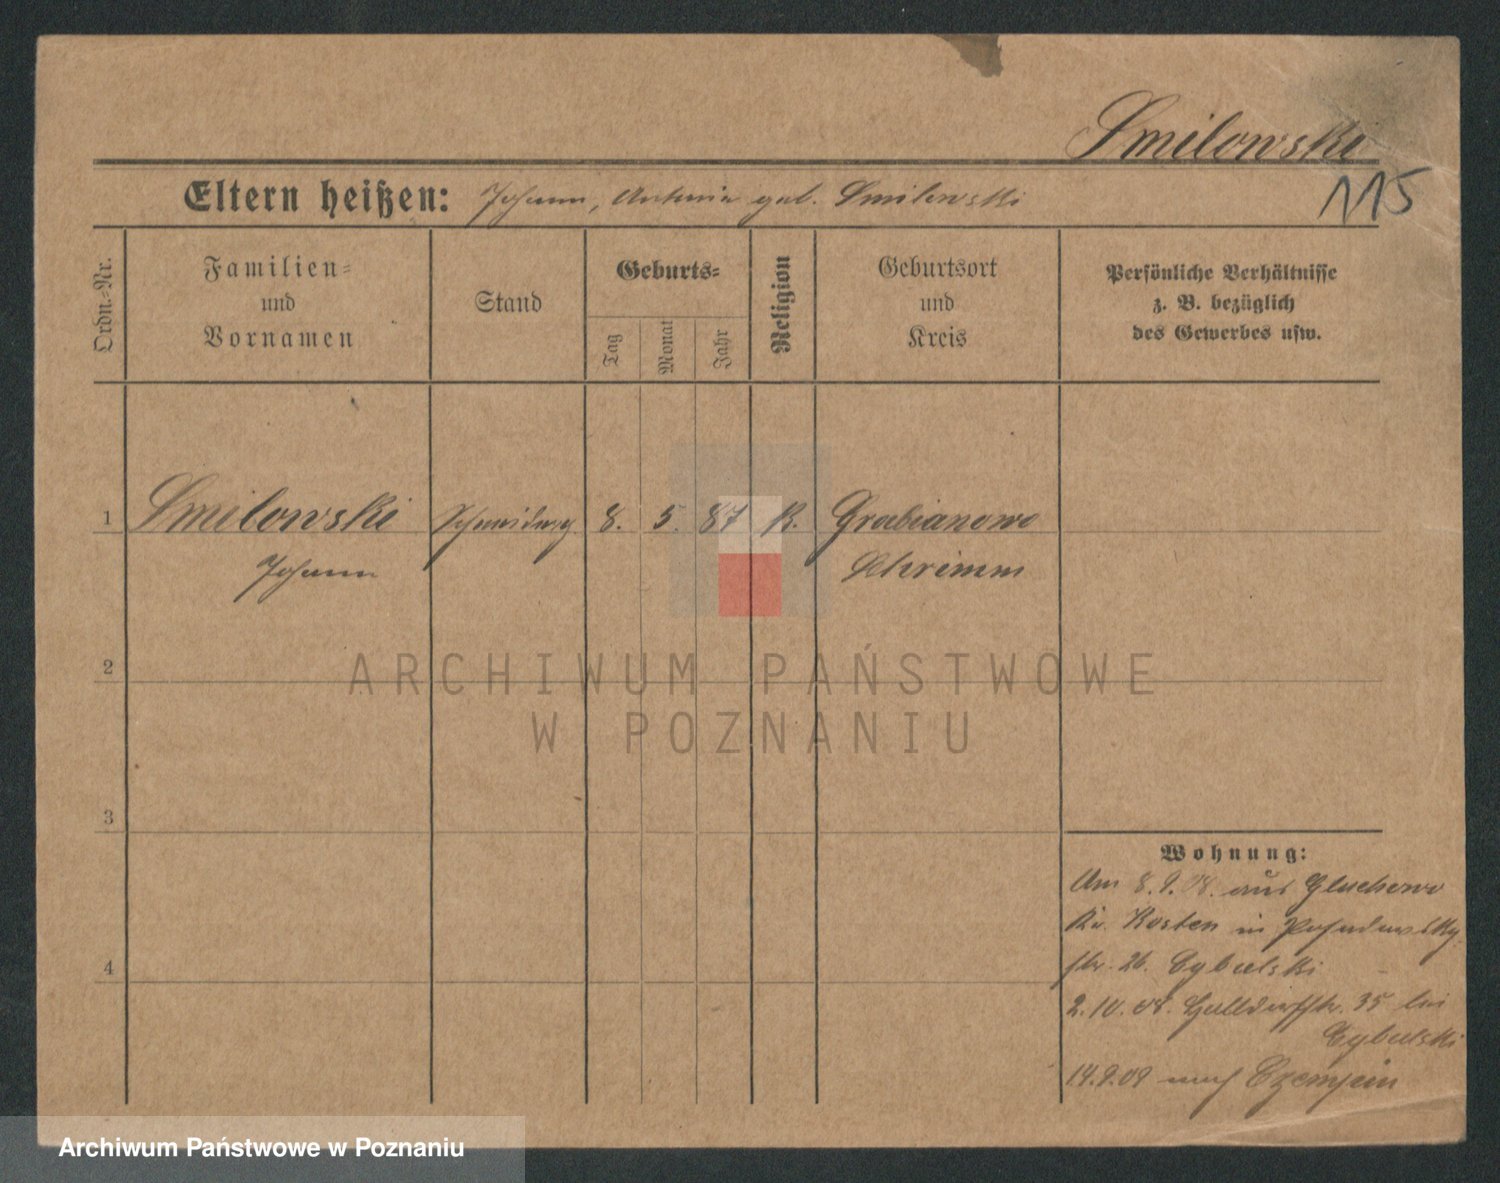 Smilowski
115
Eltern heißen: Johann, Antonia geb. Smilowski
Ordn.-Nr.
Familien-
und
Vornamen
Stand
Geburts-
Tag
Monat
Jahr
Religion
Geburtsort
und
Kreis
Persönliche Verhältnisse
z. B. bezüglich
des Gewerbes usw.
1 Smilowski 8. 5. 87 K. Grabianowo
Johann Schrimm
2
3
4
Wohnung:
Am 8.9.08. aus Gluchowo
Kr. Kosten in
str. 26. Cybulski
2.10.08. 35 bei
Cybulski
14.9.09 nach Czempin
ARCHIWUM PAŃSTWOWE
W POZNANIU
Archiwum Państwowe w Poznaniu